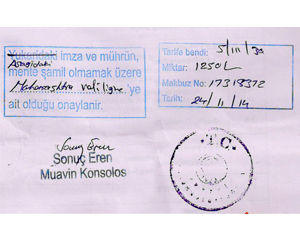 Yukarıdaki imza ve mührün,
Aşağıdaki
mente şamil olmamak üzere
Maharashtra valiliğine 'ye
ait olduğu onaylanır.
Tarife bendi: 5/III/
Miktar: 1250 L
Makbuz No: 17318372
Tarih: 24/11/14
Sonuç Eren
Sonuç Eren
Muavin Konsolos
T.C.